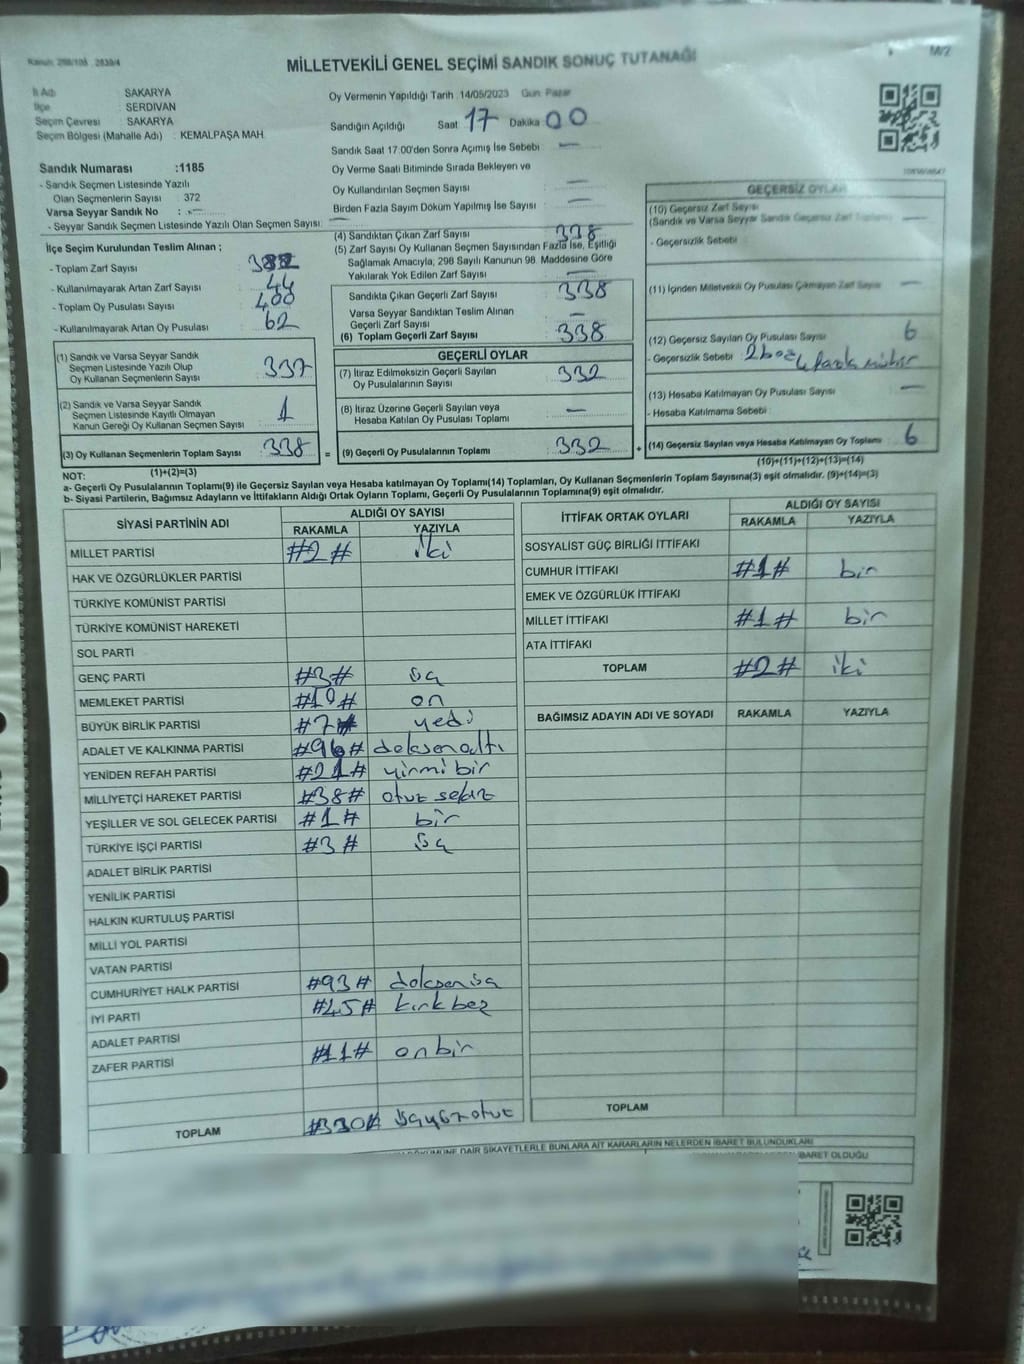 MİLLETVEKİLİ GENEL SEÇİMİ SANDIK SONUÇ TUTANAĞI
M/2
İl Adı SAKARYA
İlçe SERDİVAN
Seçim Çevresi : SAKARYA
Seçim Bölgesi (Mahalle Adı) : KEMALPAŞA MAH.
Oy Vermenin Yapıldığı Tarih : 14/05/2023 Gün: Pazar
Sandığın Açıldığı Saat 17 Dakika 00
Sandık Saat 17:00'den Sonra Açımış İse Sebebi —
Oy Verme Saati Bitiminde Sırada Bekleyen ve
Oy Kullandırılan Seçmen Sayısı —
Birden Fazla Sayım Döküm Yapılmış İse Sayısı —
Sandık Numarası :1185
- Sandık Seçmen Listesinde Yazılı
Olan Seçmenlerin Sayısı : 372
Varsa Seyyar Sandık No : —
- Seyyar Seçmen Listesinde Yazılı Olan Seçmen Sayısı: —
İlçe Seçim Kurulundan Teslim Alınan ;
- Toplam Zarf Sayısı
- Kullanılmayarak Artan Zarf Sayısı 44
- Toplam Oy Pusulası Sayısı 400
- Kullanılmayarak Artan Oy Pusulası 62
(1) Sandık ve Varsa Seyyar Sandık
Seçmen Listesinde Yazılı Olup
Oy Kullanan Seçmenlerin Sayısı 337
(2) Sandık ve Varsa Seyyar Sandık
Seçmen Listesinde Kayıtlı Olmayan
Kanun Gereği Oy Kullanan Seçmen Sayısı 1
(3) Oy Kullanan Seçmenlerin Toplam Sayısı 338 =
(1)+(2)=(3)
(4) Sandıktan Çıkan Zarf Sayısı 338
(5) Zarf Sayısı Oy Kullanan Seçmen Sayısından Fazla İse, Eşitliği
Sağlamak Amacıyla, 298 Sayılı Kanunun 98. Maddesine Göre
Yakılarak Yok Edilen Zarf Sayısı —
Sandıkta Çıkan Geçerli Zarf Sayısı 338
Varsa Seyyar Sandıktan Teslim Alınan
Geçerli Zarf Sayısı —
(6) Toplam Geçerli Zarf Sayısı 338
GEÇERLİ OYLAR
(7) İtiraz Edilmeksizin Geçerli Sayılan
Oy Pusulalarının Sayısı 332
(8) İtiraz Üzerine Geçerli Sayılan veya
Hesaba Katılan Oy Pusulası Toplamı —
(9) Geçerli Oy Pusulalarının Toplamı 332 +
GEÇERSİZ OYLAR
(10) Geçersiz Zarf Sayısı
(Sandık ve Varsa Seyyar Sandık Geçersiz Zarf Toplamı) —
- Geçersizlik Sebebi
(11) İçinden Milletvekili Oy Pusulası Çıkmayan Zarf Sayısı —
(12) Geçersiz Sayılan Oy Pusulası Sayısı 6
- Geçersizlik Sebebi 2 boş 4 fazla mühür
(13) Hesaba Katılmayan Oy Pusulası Sayısı —
- Hesaba Katılmama Sebebi :
(14) Geçersiz Sayılan veya Hesaba Katılmayan Oy Toplamı 6
(10)+(11)+(12)+(13)=(14)
NOT:
a- Geçerli Oy Pusulalarının Toplamı(9) ile Geçersiz Sayılan veya Hesaba katılmayan Oy Toplamı(14) Toplamları, Oy Kullanan Seçmenlerin Toplam Sayısına(3) eşit olmalıdır. (9)+(14)=(3)
b- Siyasi Partilerin, Bağımsız Adayların ve İttifakların Aldığı Ortak Oyların Toplamı, Geçerli Oy Pusulalarının Toplamına(9) eşit olmalıdır.
SİYASİ PARTİNİN ADI ALDIĞI OY SAYISI
RAKAMLA YAZIYLA
MİLLET PARTİSİ #2# iki
HAK VE ÖZGÜRLÜKLER PARTİSİ
TÜRKİYE KOMÜNİST PARTİSİ
TÜRKİYE KOMÜNİST HAREKETİ
SOL PARTİ
GENÇ PARTİ #3# üç
MEMLEKET PARTİSİ #10# on
BÜYÜK BİRLİK PARTİSİ #7# yedi
ADALET VE KALKINMA PARTİSİ #96# doksanaltı
YENİDEN REFAH PARTİSİ #21# yirmi bir
MİLLİYETÇİ HAREKET PARTİSİ #38# otuz sekiz
YEŞİLLER VE SOL GELECEK PARTİSİ #1# bir
TÜRKİYE İŞÇİ PARTİSİ #3# üç
ADALET BİRLİK PARTİSİ
YENİLİK PARTİSİ
HALKIN KURTULUŞ PARTİSİ
MİLLİ YOL PARTİSİ
VATAN PARTİSİ
CUMHURİYET HALK PARTİSİ #93# doksan üç
İYİ PARTİ #45# kırk beş
ADALET PARTİSİ
ZAFER PARTİSİ #11# on bir
TOPLAM #330# üçyüz otuz
İTTİFAK ORTAK OYLARI ALDIĞI OY SAYISI
RAKAMLA YAZIYLA
SOSYALİST GÜÇ BİRLİĞİ İTTİFAKI
CUMHUR İTTİFAKI #1# bir
EMEK VE ÖZGÜRLÜK İTTİFAKI
MİLLET İTTİFAKI #1# bir
ATA İTTİFAKI
TOPLAM #2# iki
BAĞIMSIZ ADAYIN ADI VE SOYADI RAKAMLA YAZIYLA
TOPLAM
DAİR ŞİKAYETLERLE BUNLARA AİT KARARLARIN NELERDEN İBARET BULUNDUKLARI
İBARET OLDUĞU